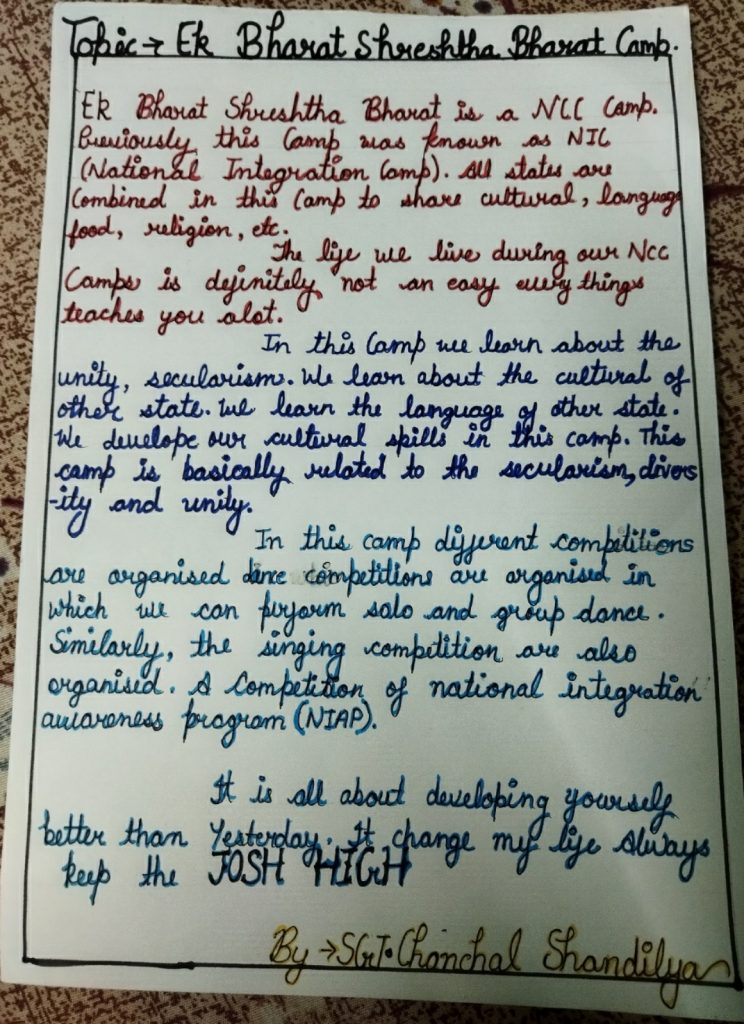 Topic → Ek Bharat Shreshtha Bharat Camp.
Ek Bharat Shreshtha Bharat is a NCC Camp.
Previously this Camp was known as NIC
(National Integration Camp). All states are
Combined in this Camp to share cultural, language
food, religion, etc.
The life we live during our NCC
Camps is definitely not an easy every things
teaches you alot.
In this Camp we learn about the
unity, secularism. We learn about the cultural of
other state. We learn the language of other state.
We develope our cultural spills in this camp. This
camp is basically related to the secularism, divers
-ity and unity.
In this camp different competitions
are organised dance competitions are organised in
which we can perform solo and group dance.
Similarly, the singing competition are also
organised. A Competition of national integration
awareness program (NIAP).
It is all about developing yourself
better than Yesterday. It change my life Always
keep the JOSH HIGH
By → SGT. Chanchal Shandilya